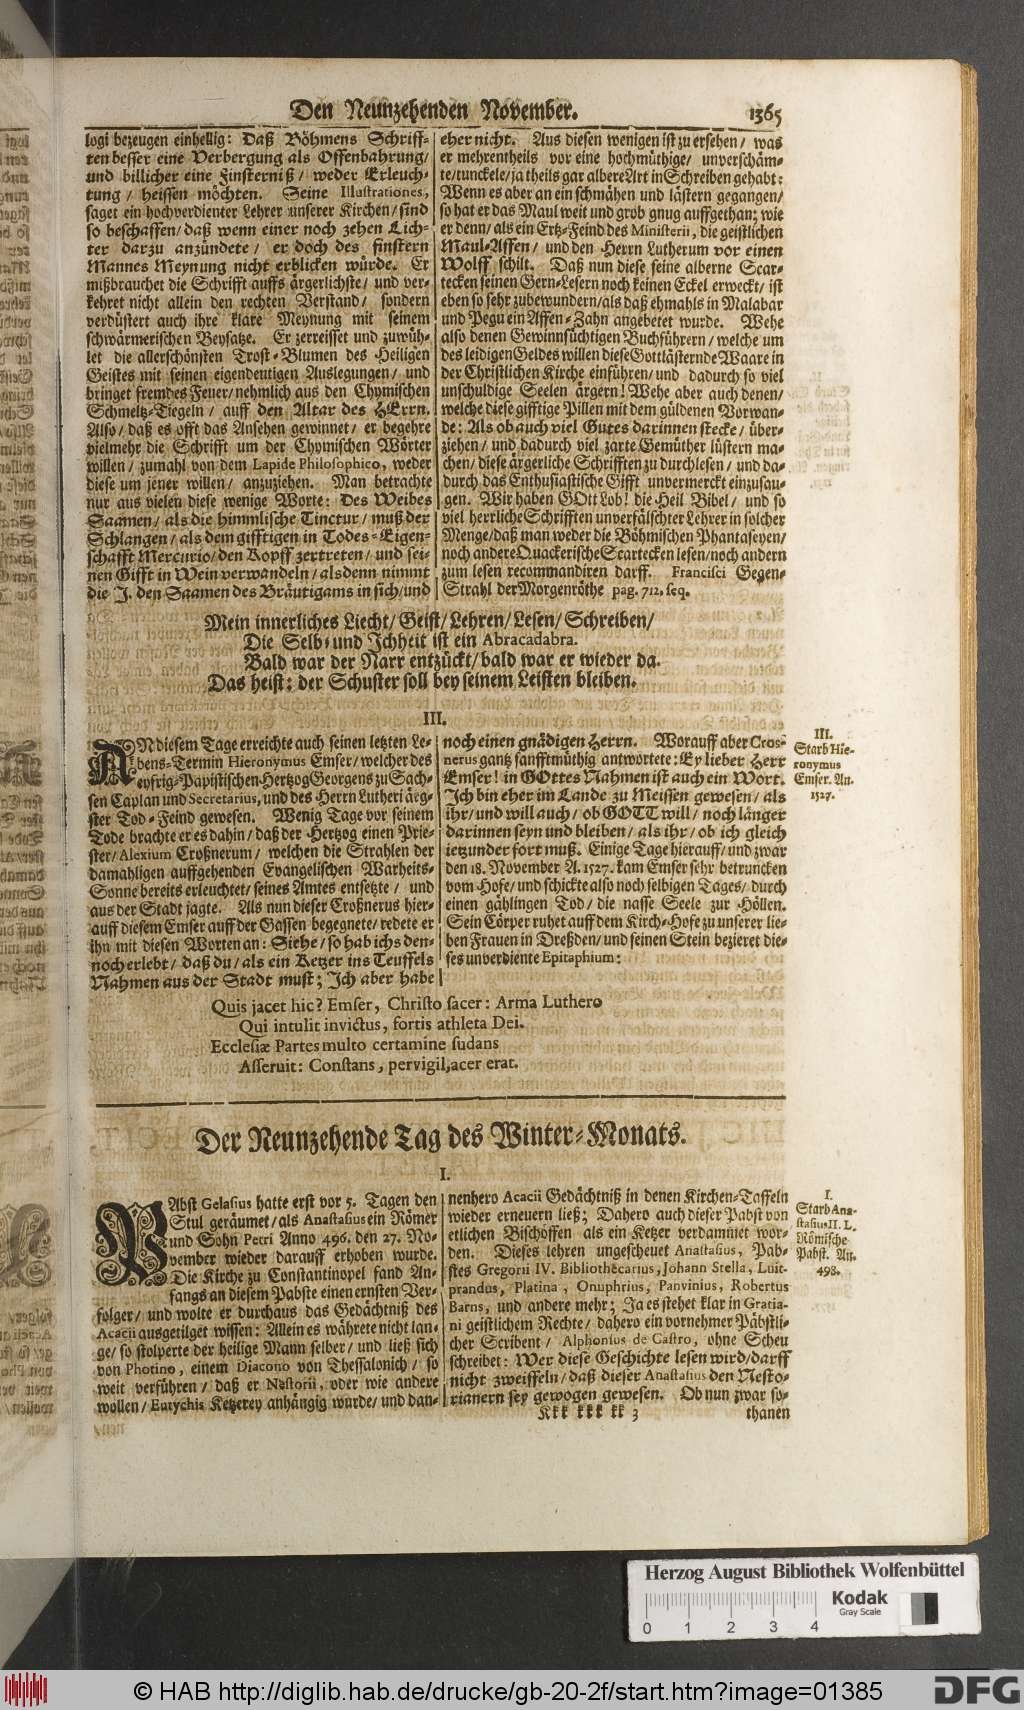 Den Neunzehenden November.
1365
logi bezeugen einhellig: Daß Böhmens Schriff-
ten besser eine Verbergung als Offenbahrung/
und billicher eine Finsterniß/ weder Erleuch-
tung/ heissen möchten. Seine Illustrationes,
saget ein hochverdienter Lehrer unserer Kirchen/ sind
so beschaffen/ daß wenn einer noch zehen Lich-
ter darzu anzündete/ er doch des finstern
Mannes Meynung nicht erblicken würde. Er
mißbrauchet die Schrifft auffs ärgerlichste/ und ver-
kehret nicht allein den rechten Verstand/ sondern
verdüstert auch ihre klare Meynung mit seinem
schwärmerischen Beysatze. Er zerreisset und zuwüh-
let die allerschönsten Trost-Blumen des Heiligen
Geistes mit seinen eigendeutigen Auslegungen/ und
bringet fremdes Feuer/ nehmlich aus den Chymischen
Schmeltz-Tiegeln/ auff den Altar des HErrn.
Also/ daß es offt das Ansehen gewinnet/ er begehre
vielmehr die Schrifft um der Chymischen Wörter
willen/ zumahl von dem Lapide Philosophico, weder
diese um jener willen/ anzuziehen. Man betrachte
nur aus vielen diese wenige Worte: Des Weibes
Saamen/ als die himmlische Tinctur/ muß der
Schlangen/ als dem gifftigen in Todes-Eigen-
schafft Mercurio/ den Kopff zertreten/ und sei-
nen Gifft in Wein verwandeln/ alsdenn nimmt
die J. den Saamen des Bräutigams in sich/ und
eher nicht. Aus diesen wenigen ist zu ersehen/ was
er mehrentheils vor eine hochmüthige/ unverschäm-
te/ tunckele/ ja theils gar albere Art in Schreiben gehabt:
Wenn es aber an ein schmähen und lästern gegangen/
so hat er das Maul weit und grob gnug auffgethan; wie
er denn/ als ein Ertz-Feind des Ministerii, die geistlichen
Maul-Affen/ und den Herrn Lutherum vor einen
Wolff schilt. Daß nun diese seine alberne Scar-
tecken seinen Gern-Lesern noch keinen Eckel erweckt/ ist
eben so sehr zubewundern/ als daß ehmahls in Malabar
und Pegu ein Affen-Zahn angebetet wurde. Wehe
also denen Gewinnsüchtigen Buchführern/ welche um
des leidigen Geldes willen diese Gottlästernde Waare in
der Christlichen Kirche einführen/ und dadurch so viel
unschuldige Seelen ärgern! Wehe aber auch denen/
welche diese gifftige Pillen mit dem güldenen Vorwan-
de: Als ob auch viel Gutes darinnen stecke/ über-
ziehen/ und dadurch viel zarte Gemüther lüstern ma-
chen/ diese ärgerliche Schrifften zu durchlesen/ und da-
durch das Enthusiastische Gifft unvermerckt einzusau-
gen. Wir haben GOtt Lob! die Heil Bibel/ und so
viel herrliche Schrifften unverfälschter Lehrer in solcher
Menge/ daß man weder die Böhmischen Phantaseyen/
noch andere Quackerische Scartecken lesen/ noch andern
zum lesen recommandiren darff. Francisci Gegen-
Strahl der Morgenröthe pag. 712. seq.
Mein innerliches Liecht/ Geist/ Lehren/ Lesen/ Schreiben/
Die Selb- und Ichheit ist ein Abracadabra.
Bald war der Narr entzückt/ bald war er wieder da.
Das heist: der Schuster soll bey seinem Leisten bleiben.
III.
AN diesem Tage erreichte auch seinen letzten Le-
bens-Termin Hieronymus Emser/ welcher des
eyfrig-Papistischen Hertzog Georgens zu Sach-
sen Caplan und Secretarius, und des Herrn Lutheri ärg-
ster Tod-Feind gewesen. Wenig Tage vor seinem
Tode brachte er es dahin/ daß der Hertzog einen Prie-
ster/ Alexium Croßnerum/ welchen die Strahlen der
damahligen auffgehenden Evangelischen Warheits-
Sonne bereits erleuchtet/ seines Amtes entsetzte/ und
aus der Stadt jagte. Als nun dieser Croßnerus hier-
auff diesem Emser auff der Gassen begegnete/ redete er
ihn mit diesen Worten an: Siehe/ so hab ichs den-
noch erlebt/ daß du/ als ein Ketzer ins Teuffels
Nahmen aus der Stadt must; Ich aber habe
noch einen gnädigen Herrn. Worauff aber Cros-
nerus gantz sanfftmüthig antwortete: Ey lieber Herr
Emser! in GOttes Nahmen ist auch ein Wort.
Ich bin eher im Lande zu Meissen gewesen/ als
ihr/ und will auch/ ob GOTT will/ noch länger
darinnen seyn und bleiben/ als ihr/ ob ich gleich
ietzunder fort muß. Einige Tage hierauff/ und zwar
den 18. November A. 1527. kam Emser sehr betruncken
vom Hofe/ und schickte also noch selbigen Tages/ durch
einen gählingen Tod/ die nasse Seele zur Höllen.
Sein Cörper ruhet auff dem Kirch-Hofe zu unserer lie-
ben Frauen in Dreßden/ und seinen Stein bezieret die-
ses unverdiente Epitaphium:
III.
Starb Hie-
ronymus
Emser. An.
1527.
Quis jacet hic? Emser, Christo sacer: Arma Luthero
Qui intulit invictus, fortis athleta Dei.
Ecclesiæ Partes multo certamine sudans
Asseruit: Constans, pervigil, acer erat.
Der Neunzehende Tag des Winter-Monats.
I.
PAbst Gelasius hatte erst vor 5. Tagen den
Stul geräumet/ als Anastasius ein Römer
und Sohn Petri Anno 496. den 27. No-
vember wieder darauff erhoben wurde.
Die Kirche zu Constantinopel fand An-
fangs an diesem Pabste einen ernsten Ver-
folger/ und wolte er durchaus das Gedächtniß des
Acacii ausgetilget wissen: Allein es währete nicht lan-
ge/ so stolperte der heilige Mann selber/ und ließ sich
von Photino, einem Diacono von Thessalonich/ so
weit verführen/ daß er Nestorii, oder wie andere
wollen/ Eutychis Ketzerey anhängig wurde/ und dan-
nenhero Acacii Gedächtniß in denen Kirchen-Taffeln
wieder erneuern ließ; Dahero auch dieser Pabst von
etlichen Bischöffen als ein Ketzer verdammet wor-
den. Dieses lehren ungescheuet Anastasius, Päb-
stes Gregorii IV. Bibliothecarius, Johann Stella, Luit-
prandus, Platina, Onuphrius, Panvinius, Robertus
Barns, und andere mehr; Ja es stehet klar in Gratia-
ni geistlichem Rechte/ dahero ein vornehmer Päbstli-
cher Scribent/ Alphonsus de Castro, ohne Scheu
schreibet: Wer diese Geschichte lesen wird/ darff
nicht zweiffeln/ daß dieser Anastasius den Nesto-
rianern sey gewogen gewesen. Ob nun zwar so-
Kkk kkk kk 3
thanen
I.
Starb Ana-
stasius II. L.
Römische
Pabst. An.
498.
Herzog August Bibliothek Wolfenbüttel
Kodak
Gray Scale
0 1 2 3 4
© HAB http://diglib.hab.de/drucke/gb-20-2f/start.htm?image=01385
DFG